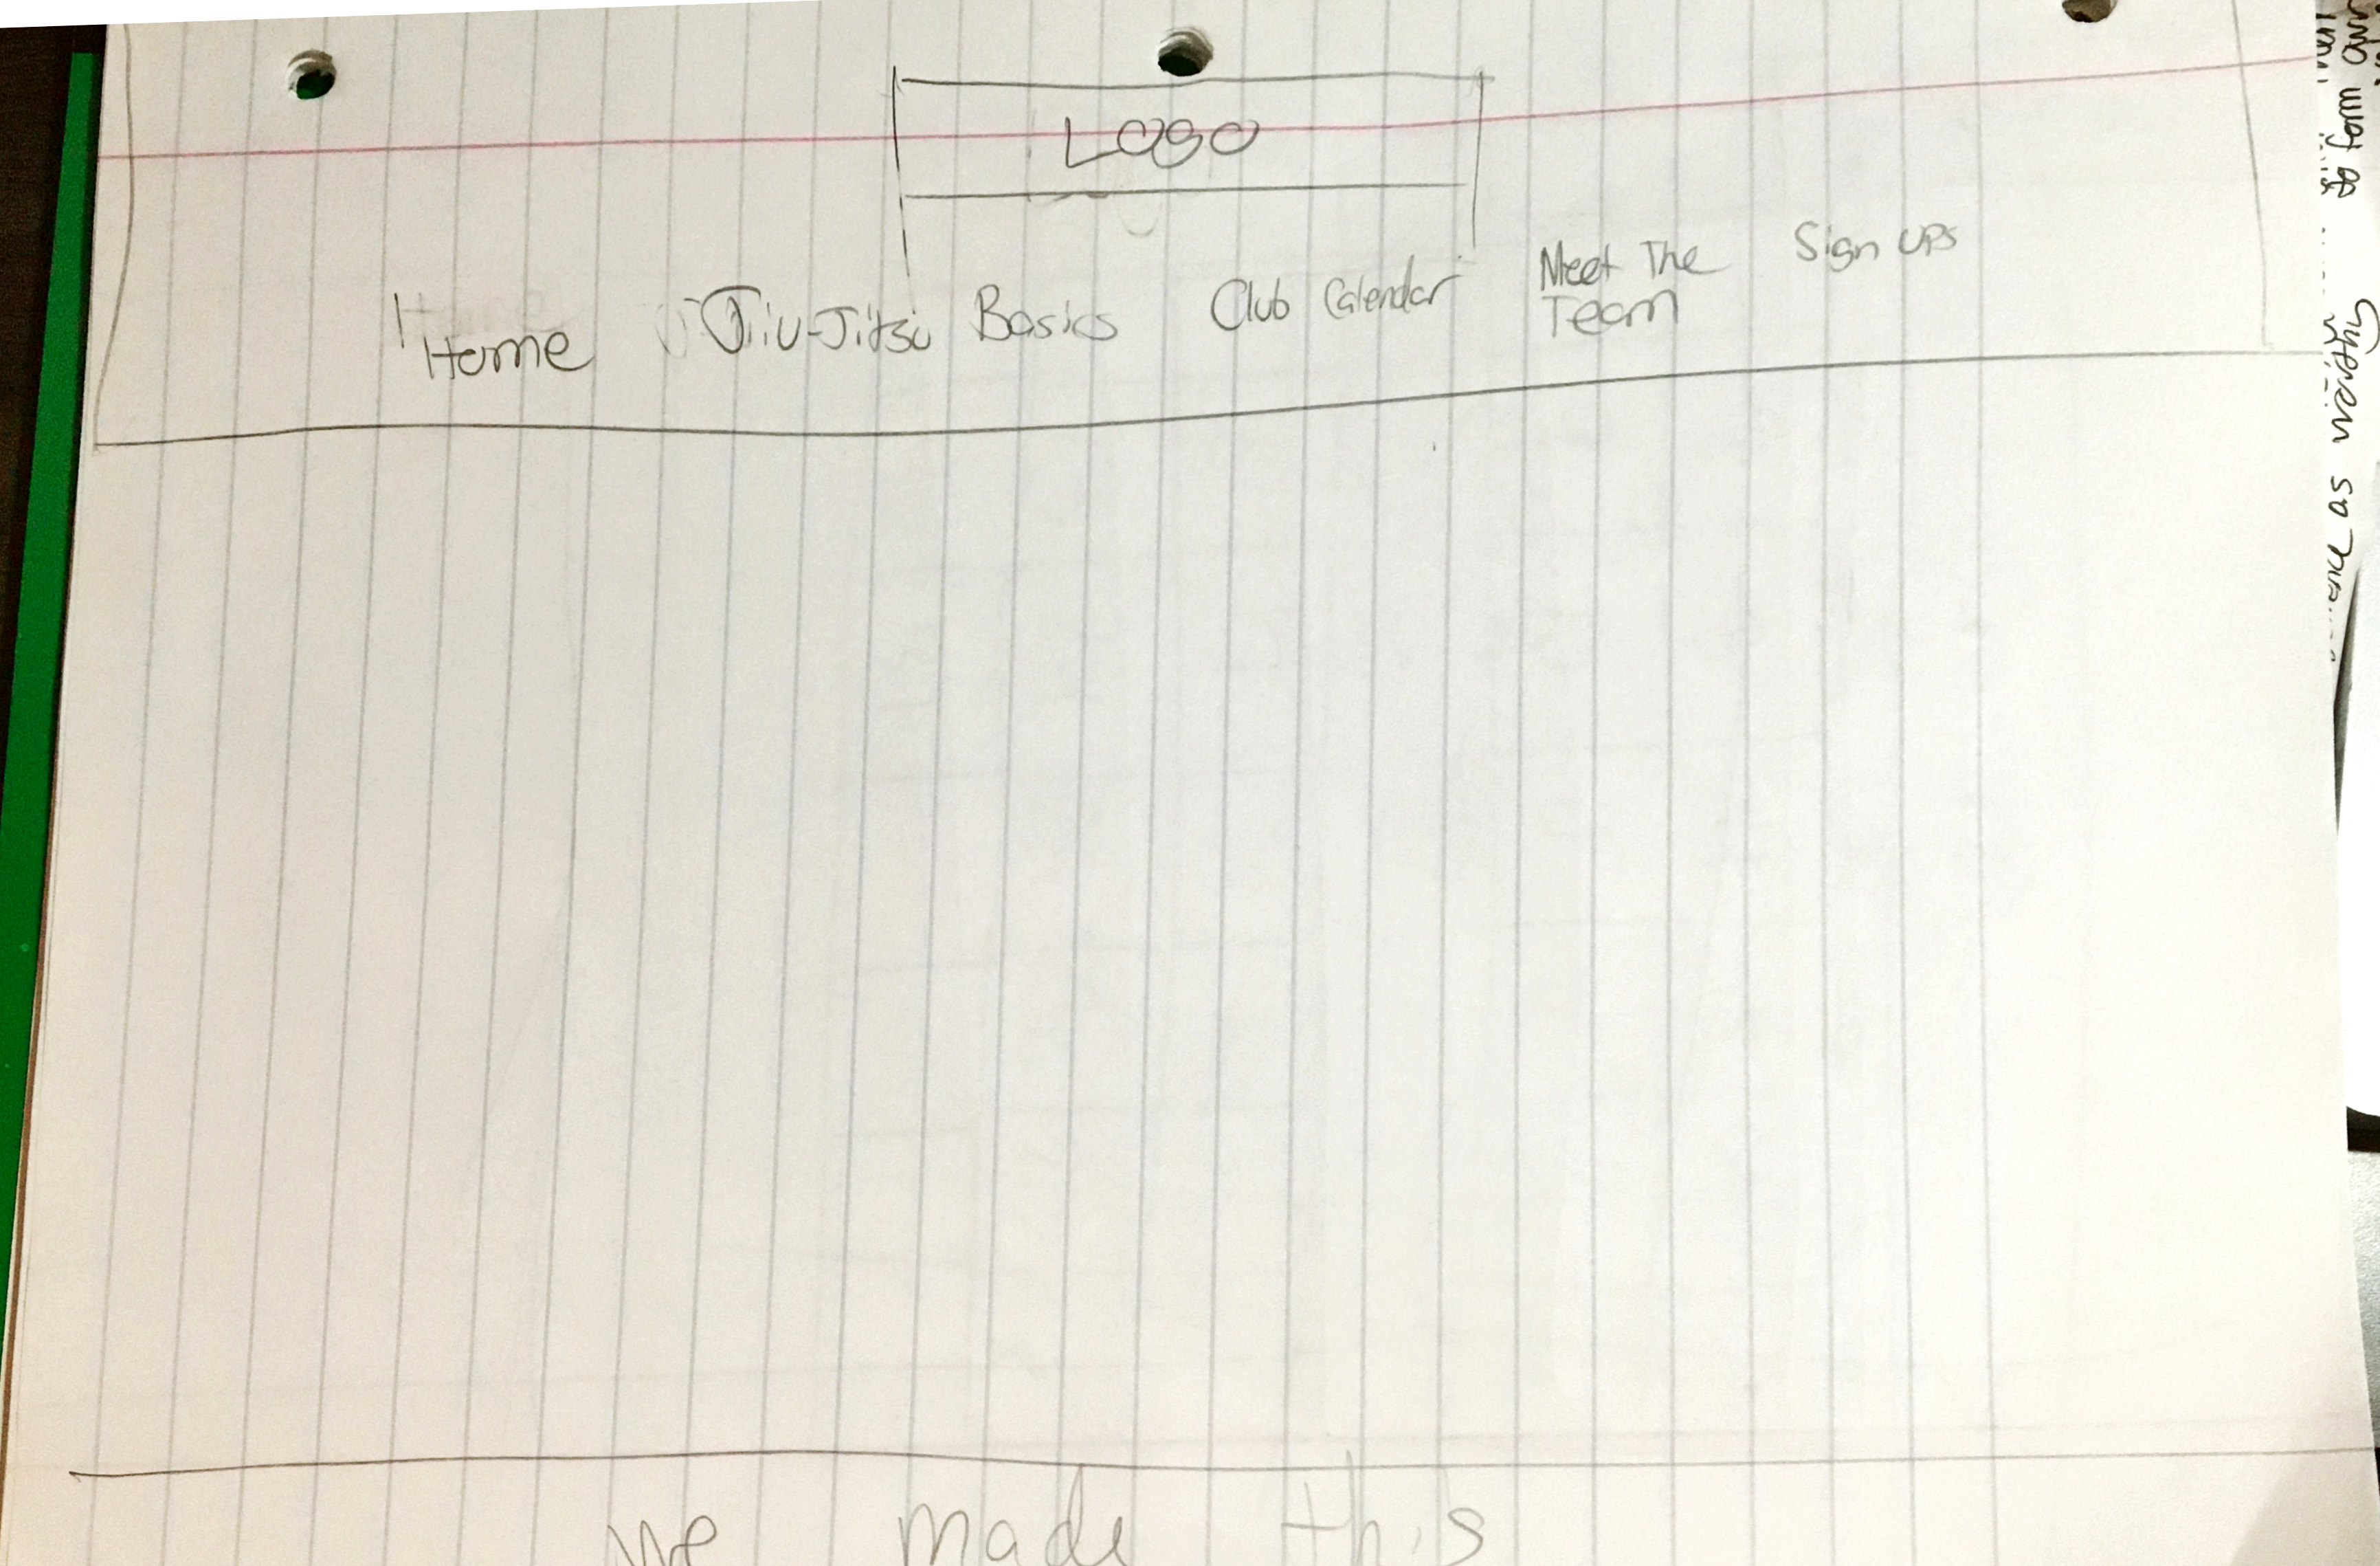 LOGO
Home Jiu-Jitsu Basics Club Calendar Meet The Team Sign UPS
we made this
so